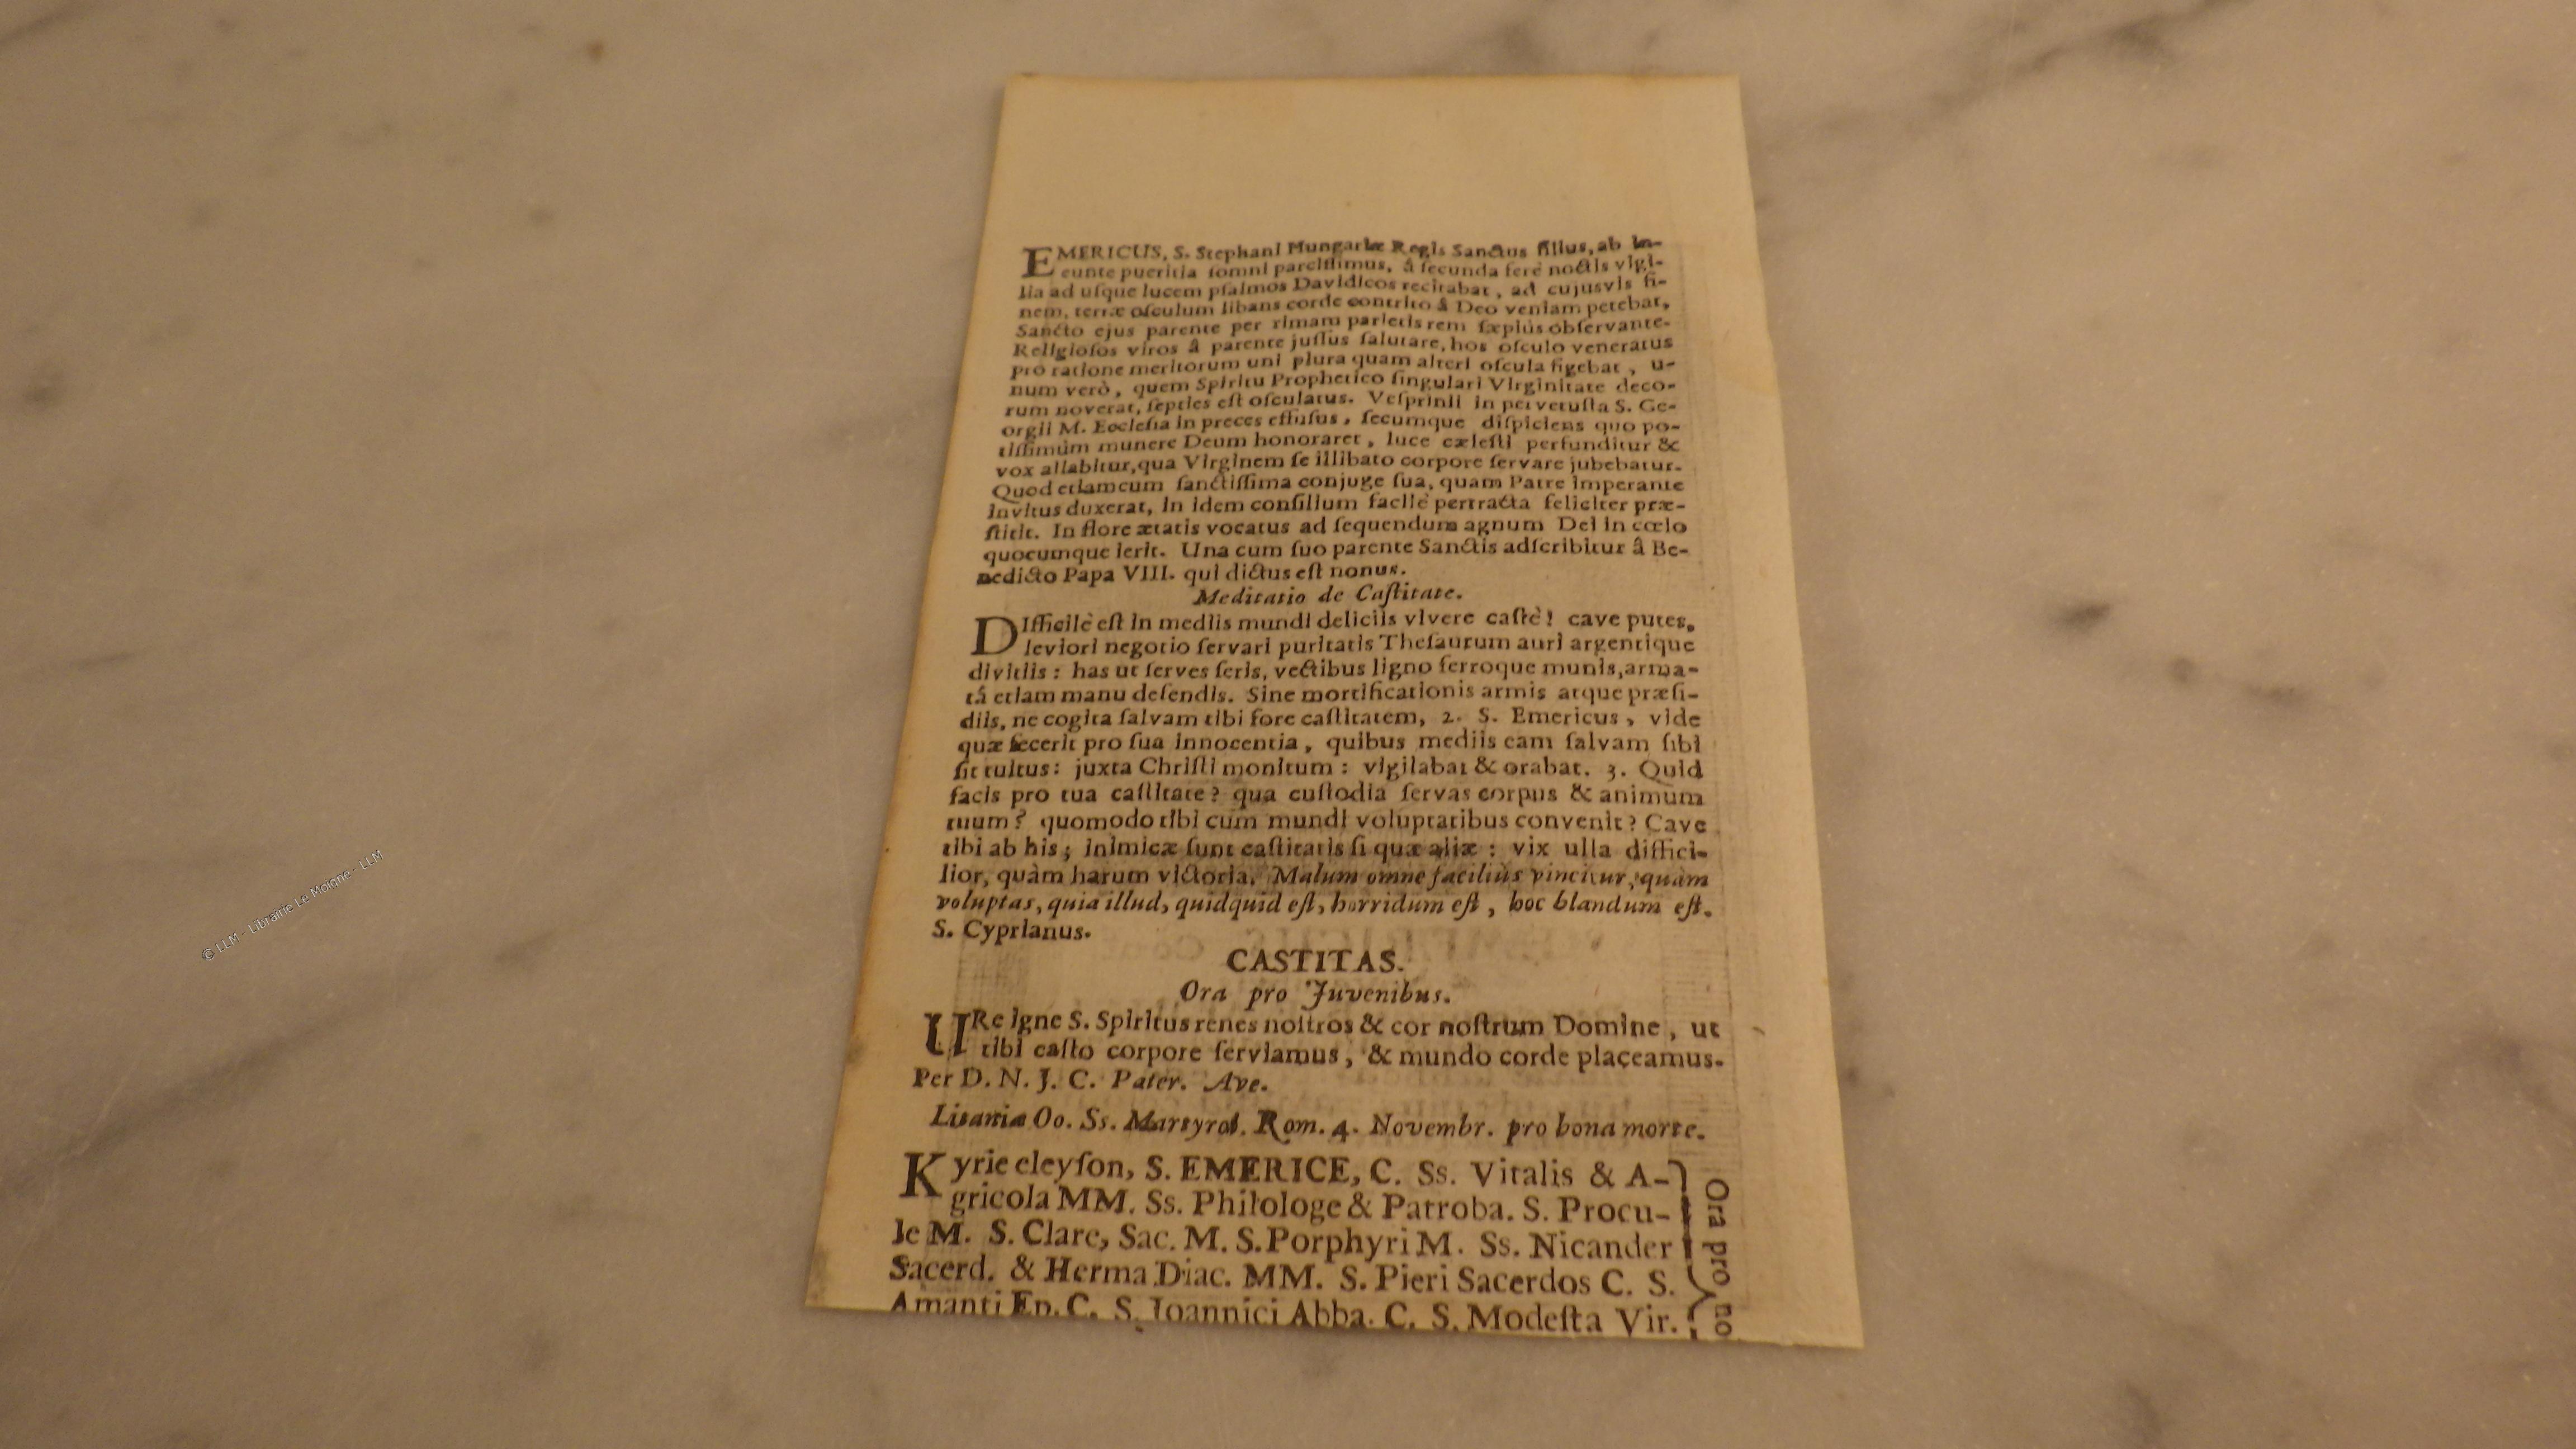 EMERICUS, S. Stephani Hungariæ Regis Sanctus filius, ab in-
eunte pueritia somni parcissimus, â secunda ferè noctis vigi-
lia ad usque lucem psalmos Davidicos recitabat, ad cujusvis fi-
nem, terræ osculum libans corde contrito â Deo veniam petebat,
Sancto ejus parente per rimam parietis rem sæpiùs observante.
Religiosos viros â parente jussus salutare, hos osculo veneratus
pro ratione meritorum uni plura quam alteri oscula figebat, u-
num verò, quem Spiritu Prophetico singulari Virginitate deco-
rum noverat, septies est osculatus. Vesprinii in pervetusta S. Ge-
orgii M. Ecclesia in preces effusus, secumque dispiciens quo po-
tissimùm munere Deum honoraret, luce cælesti perfunditur &
vox allabitur, qua Virginem se illibato corpore servare jubebatur.
Quod etiamcum sanctissima conjuge sua, quam Patre imperante
invitus duxerat, in idem consilium facilè pertracta feliciter præ-
stitit. In flore ætatis vocatus ad sequendum agnum Dei in cœlo
quocumque ierit. Una cum suo parente Sanctis adscribitur â Be-
nedicto Papa VIII. qui dictus est nonus.
Meditatio de Castitate.
DIfficilè est in mediis mundi deliciis vivere castè! cave putes,
leviori negotio servari puritatis Thesaurum auri argentique
divitiis: has ut serves seris, vectibus ligno ferroque munis, arma-
tâ etiam manu defendis. Sine mortificationis armis atque præsi-
diis, ne cogita salvam tibi fore castitatem, 2. S. Emericus, vide
quæ fecerit pro sua innocentia, quibus mediis eam salvam sibi
sit tuitus: juxta Christi monitum: vigilabat & orabat. 3. Quid
facis pro tua castitate? qua custodia servas corpus & animum
tuum? quomodo tibi cum mundi voluptatibus convenit? Cave
tibi ab his; inimicæ sunt castitatis si quæ aliæ: vix ulla diffici-
lior, quàm harum victoria. Malum omne faciliùs vincitur, quàm
voluptas, quia illud, quidquid est, horridum est, hoc blandum est.
S. Cyprianus.
CASTITAS.
Ora pro Juvenibus.
URe igne S. Spiritus renes nostros & cor nostrum Domine, ut
tibi casto corpore serviamus, & mundo corde placeamus.
Per D. N. J. C. Pater. Ave.
Litaniæ Oo. Ss. Martyrol. Rom. 4. Novembr. pro bona morte.
Kyrie eleyson, S. EMERICE, C. Ss. Vitalis & A-
gricola MM. Ss. Philologe & Patroba. S. Procu-
le M. S. Clare, Sac. M. S. Porphyri M. Ss. Nicander
Sacerd. & Herma Diac. MM. S. Pieri Sacerdos C. S.
Amanti Ep. C. S. Joannici Abba. C. S. Modesta Vir.
Ora pro no
© LLM - Librairie Le Moigne - LLM